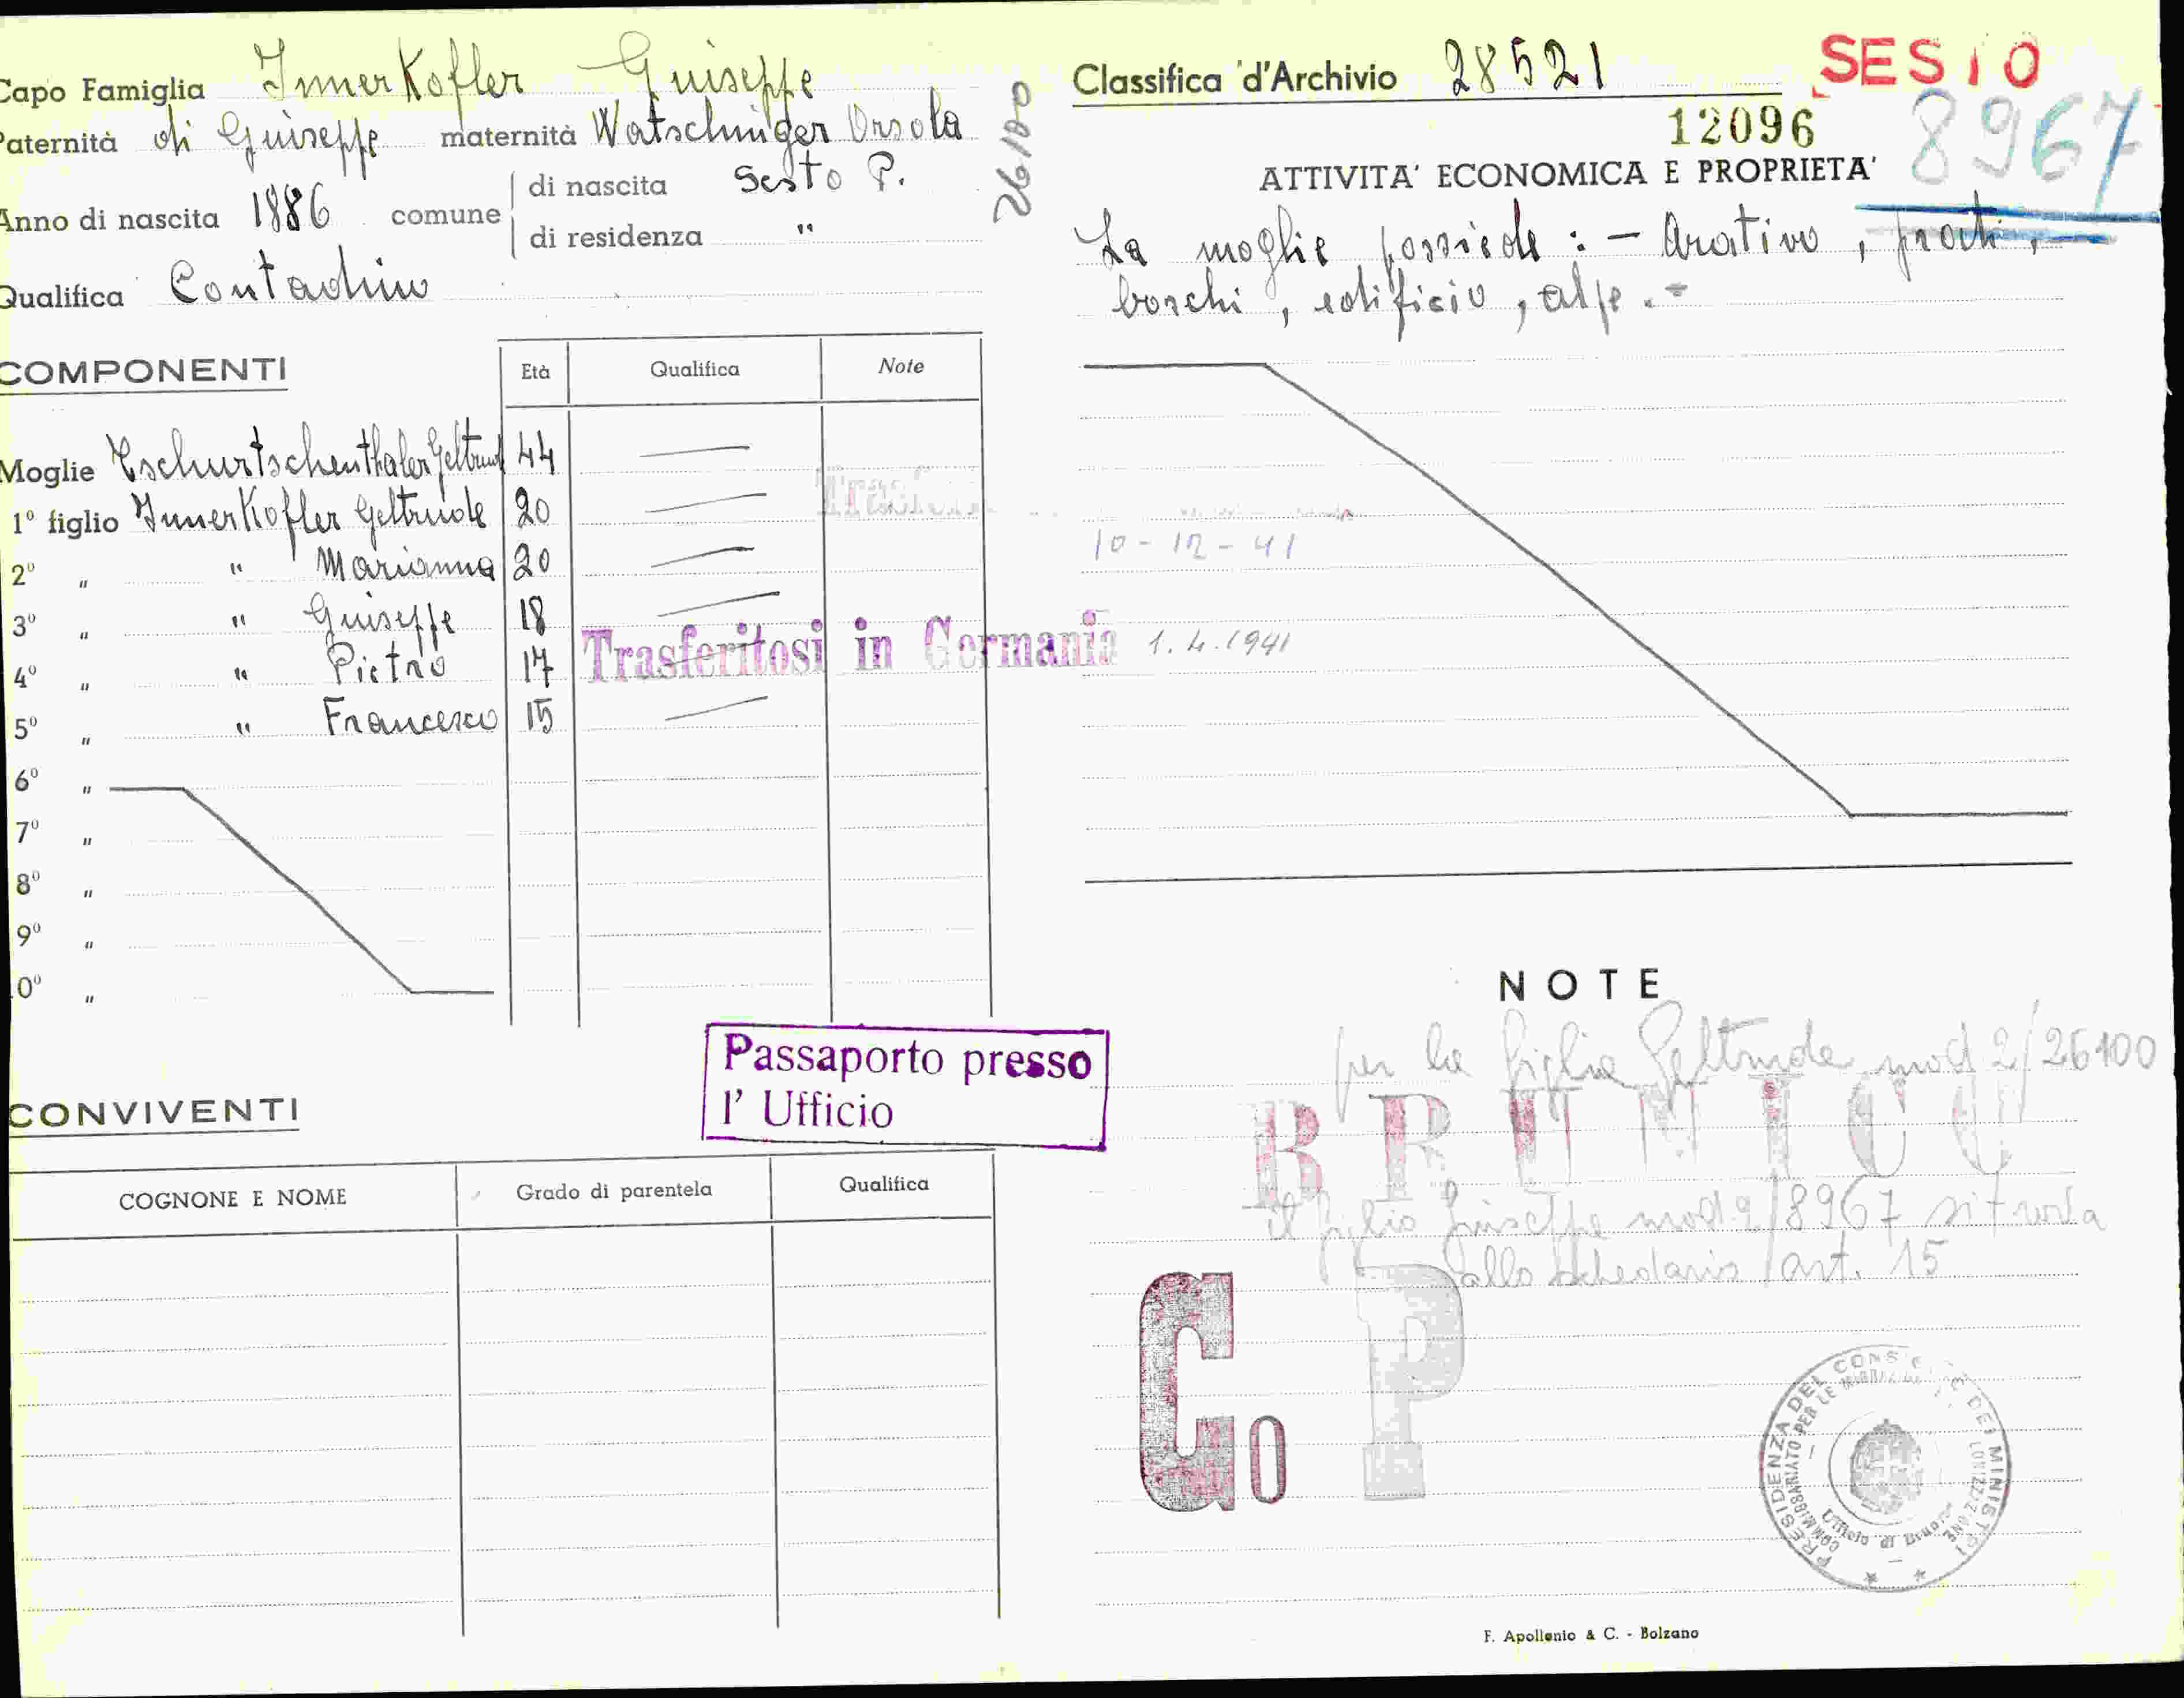 Capo Famiglia Innerkofler Giuseppe
Paternità di Giuseppe maternità Watschinger Orsola
Anno di nascita 1886 comune di nascita Sesto P.
di residenza "
Qualifica Contadino
26100
COMPONENTI Età Qualifica Note
Moglie Tschurtschenthaler Geltrud 44
1º figlio Innerkofler Geltrude 20
2º " " Marianna 20
3º " " Giuseppe 18
4º " " Pietro 17
Trasferitosi in Germania 1.4.1941
5º " " Francesco 15
6º "
7º "
8º "
9º "
0º "
Passaporto presso
l' Ufficio
CONVIVENTI
COGNONE E NOME Grado di parentela Qualifica
Classifica d'Archivio 28521
SESTO
12096
8967
ATTIVITA' ECONOMICA E PROPRIETA'
La moglie possiede : - Arativo, prati,
boschi, edificio, alpe. -
10-12-41
NOTE
per la figlia Geltrude mod 2/26100
BRUNICO
il figlio Giuseppe mod. 2/8967 si trova
allo schedario art. 15
Go P
PRESIDENZA DEL CONSIGLIO DEI MINISTRI
COMMISSARIATO PER LE
Ufficio di
F. Apollonio & C. - Bolzano